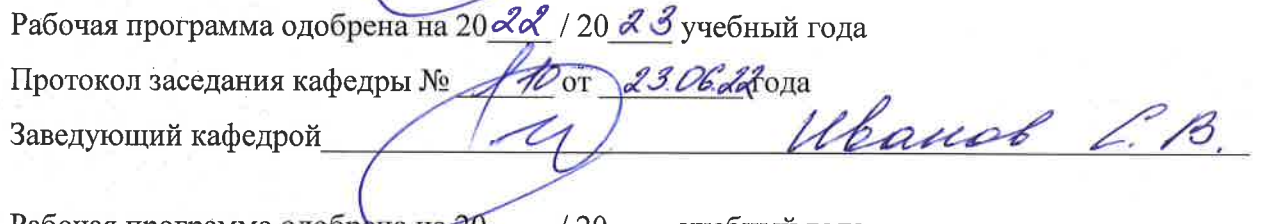 Рабочая программа одобрена на 2022 / 2023 учебный года
Протокол заседания кафедры № 10 от 23.06.22 года
Заведующий кафедрой Иванов С. В.
Рабочая программа одобрена на 20____ / 20____ учебный года